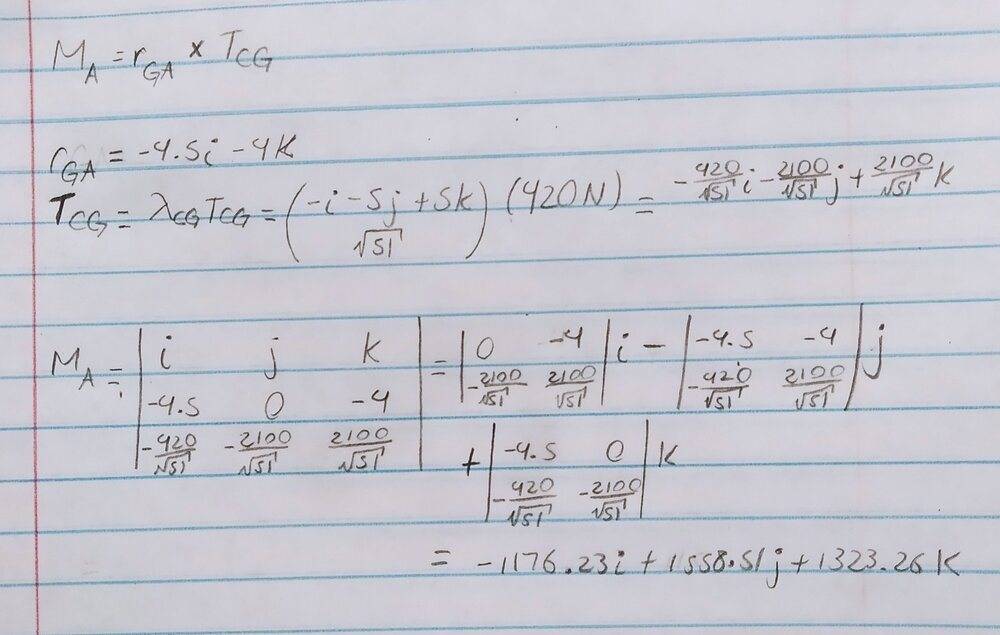 M_A = r_GA × T_CG
r_GA = -4.5i - 4K
T_CG = λ_CG T_CG = ((-i - 5j + 5k)/√51) (420N) = -420/√51 i - 2100/√51 j + 2100/√51 K
M_A = | i j K ; -4.5 0 -4 ; -420/√51 -2100/√51 2100/√51 | = | 0 -4 ; -2100/√51 2100/√51 | i - | -4.5 -4 ; -420/√51 2100/√51 | j
+ | -4.5 0 ; -420/√51 -2100/√51 | K
= -1176.23i + 1558.51j + 1323.26K